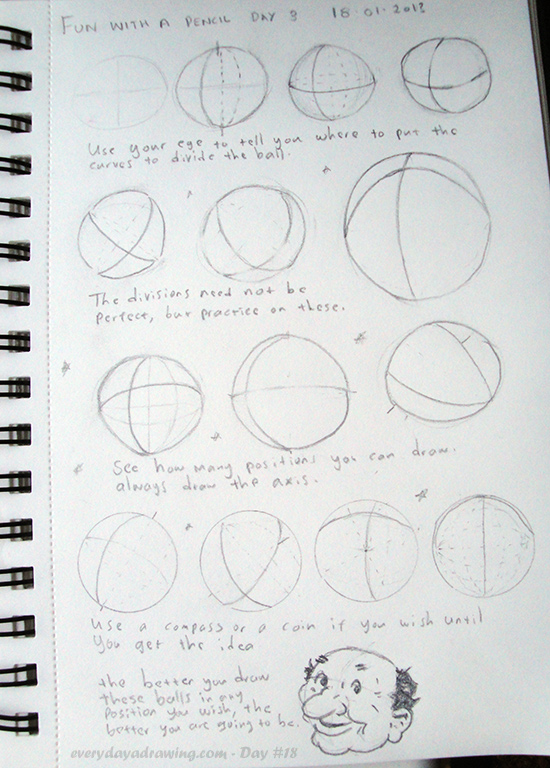 FUN WITH A PENCIL DAY 3 18.01.2013
Use your eye to tell you where to put the
curves to divide the ball.
The divisions need not be
perfect, but practice on these.
See how many positions you can draw.
always draw the axis.
Use a compass or a coin if you wish until
you get the idea
the better you draw
these balls in any
position you wish, the
better you are going to be.
everydayadrawing.com - Day #18